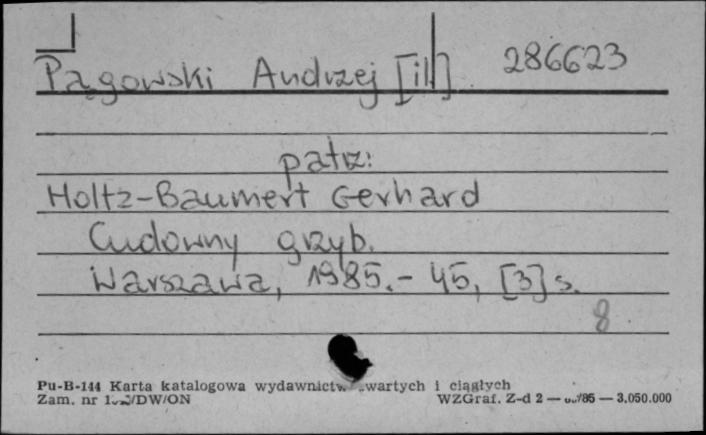 Pągowski Andrzej [il] 286623
patrz:
Holtz-Baumert Gerhard
Cudowny grzyb.
Warszawa, 1985. - 45, [3] s.
8
Pu-B-144 Karta katalogowa wydawnictw zwartych i ciągłych
Zam. nr /DW/ON WZGraf. Z-d 2 — /85 — 3.050.000